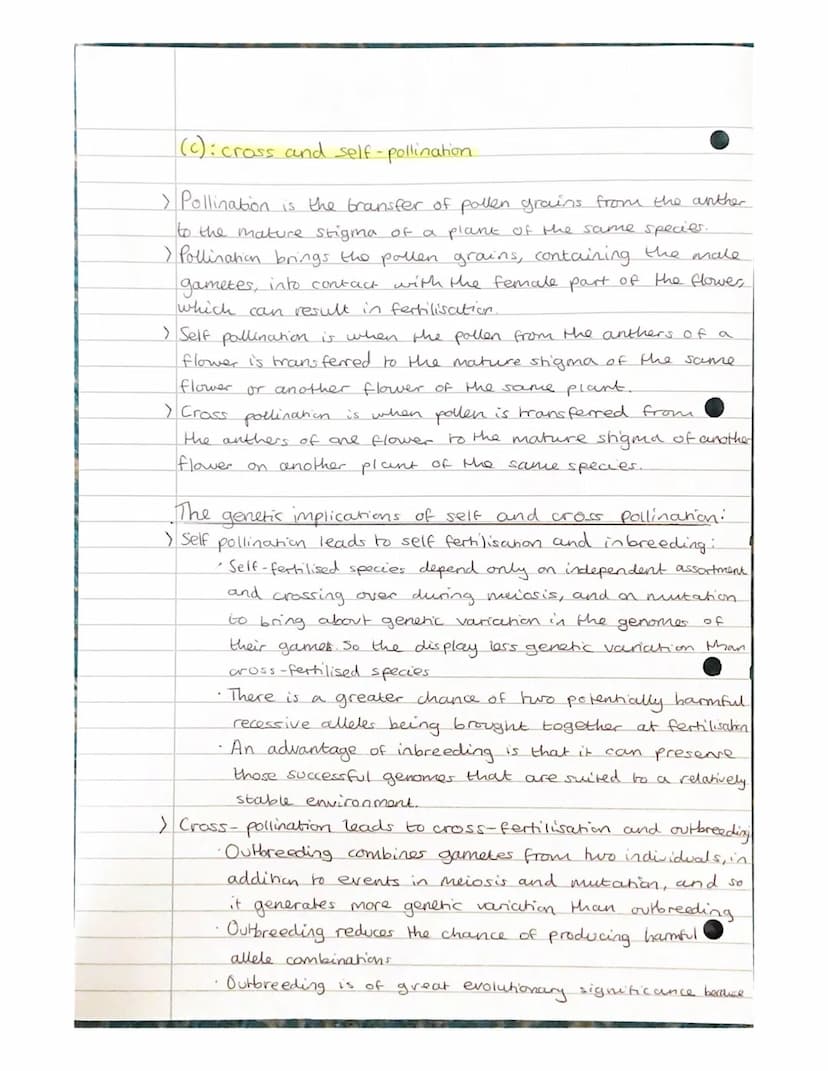 (c): cross and self-pollination
> Pollination is the transfer of pollen grains from the anther
to the mature stigma of a plant of the same species.
> Pollination brings the pollen grains, containing the male
gametes, into contact with the female part of the flower,
which can result in fertilisation.
> Self pollination is when the pollen from the anthers of a
flower is transferred to the mature stigma of the same
flower or another flower of the same plant.
> Cross pollination is when pollen is transferred from
the anthers of one flower to the mature stigma of another
flower on another plant of the same species.
The genetic implications of self and cross pollination:
> Self pollination leads to self fertilisation and inbreeding:
· Self-fertilised species depend only on independent assortment
and crossing over during meiosis, and on mutation
to bring about genetic variation in the genomes of
their games. So the display less genetic variation than
cross-fertilised species
· There is a greater chance of two potentially harmful
recessive alleles being brought together at fertilisation
· An advantage of inbreeding is that it can preserve
those successful genomes that are suited to a relatively
stable environment.
> Cross-pollination leads to cross-fertilisation and outbreeding
· Outbreeding combines gametes from two individuals, in
addition to events in meiosis and mutation, and so
it generates more genetic variation than outbreeding
· Outbreeding reduces the chance of producing harmful
allele combinations
· Outbreeding is of great evolutionary significance because